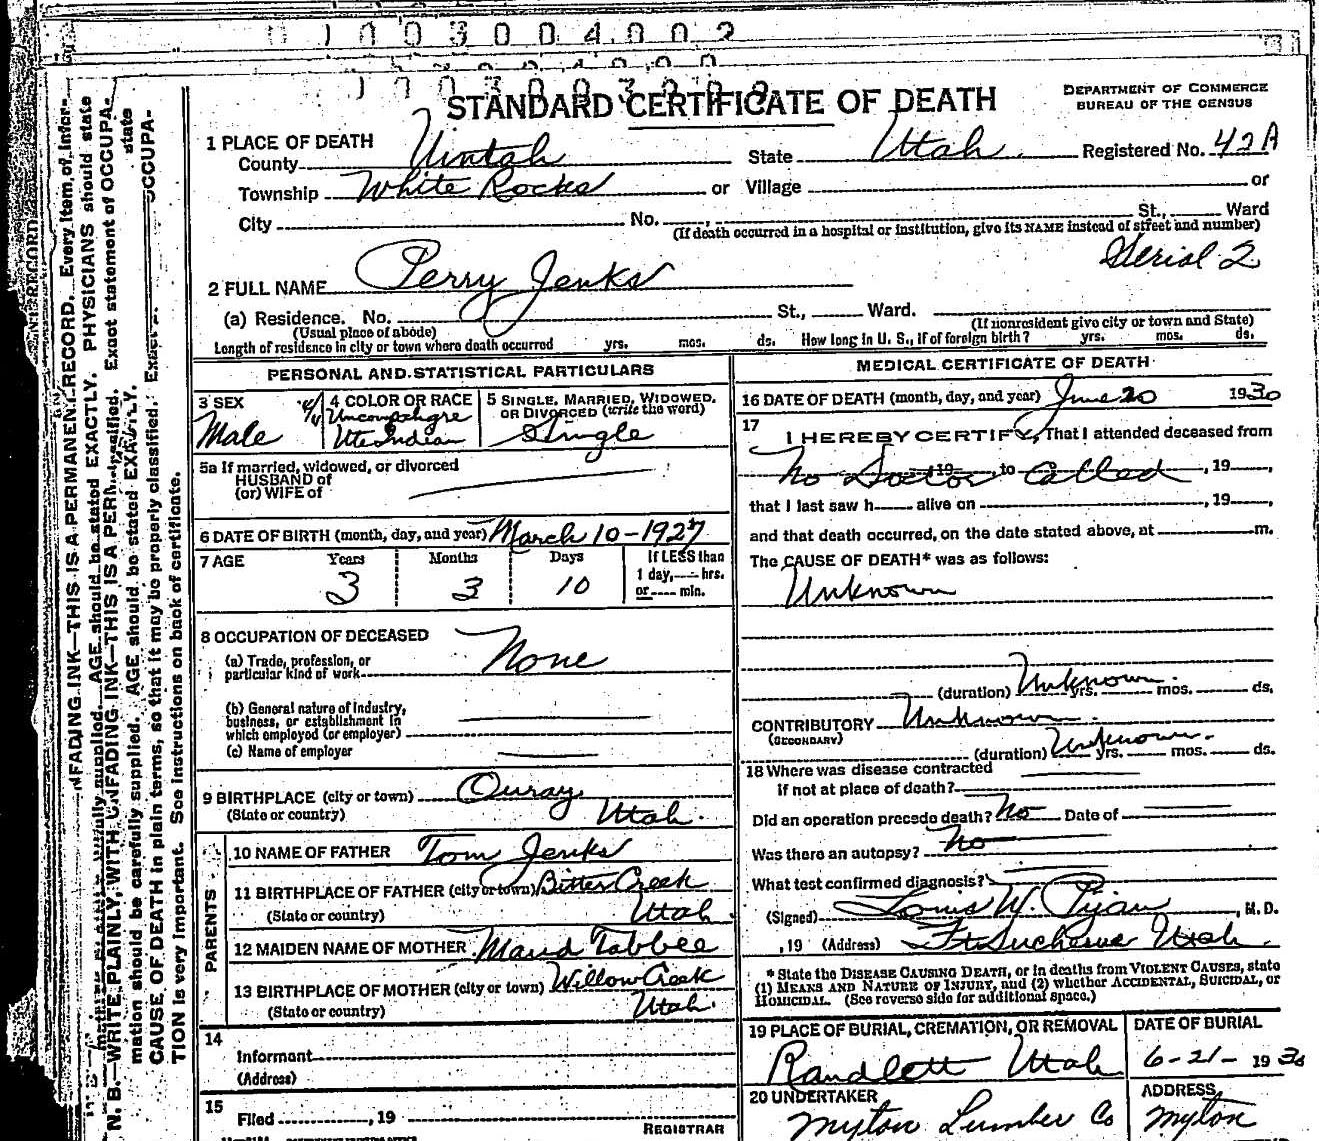 STANDARD CERTIFICATE OF DEATH
DEPARTMENT OF COMMERCE
BUREAU OF THE CENSUS
1 PLACE OF DEATH
County Uintah State Utah Registered No. 42A
Township White Rocks or Village or
City No. St., Ward
(If death occurred in a hospital or institution, give its NAME instead of street and number)
Serial 2
2 FULL NAME Perry Jenks
(a) Residence. No. St., Ward.
(Usual place of abode) (If nonresident give city or town and State)
Length of residence in city or town where death occurred yrs. mos. ds. How long in U. S., if of foreign birth? yrs. mos. ds.
PERSONAL AND STATISTICAL PARTICULARS
3 SEX Male
4/4
4 COLOR OR RACE
Uncompahgre
Ute Indian
5 SINGLE, MARRIED, WIDOWED,
OR DIVORCED (write the word)
Single
5a If married, widowed, or divorced
HUSBAND of
(or) WIFE of
6 DATE OF BIRTH (month, day, and year) March 10-1927
7 AGE Years Months Days If LESS than
1 day, hrs.
or min.
3 3 10
8 OCCUPATION OF DECEASED
(a) Trade, profession, or
particular kind of work None
(b) General nature of industry,
business, or establishment in
which employed (or employer)
(c) Name of employer
9 BIRTHPLACE (city or town) Ouray
(State or country) Utah.
PARENTS
10 NAME OF FATHER Tom Jenks
11 BIRTHPLACE OF FATHER (city or town) Bitter Creek
(State or country) Utah.
12 MAIDEN NAME OF MOTHER Maud Tabbee
13 BIRTHPLACE OF MOTHER (city or town) Willow Creek
(State or country) Utah.
14
Informant
(Address)
15
Filed , 19
REGISTRAR
MEDICAL CERTIFICATE OF DEATH
16 DATE OF DEATH (month, day, and year) June 20 1930
17
I HEREBY CERTIFY, That I attended deceased from
No Doctor, 19, to Called, 19,
that I last saw h alive on , 19,
and that death occurred, on the date stated above, at m.
The CAUSE OF DEATH* was as follows:
Unknown
(duration) Unknown. yrs. mos. ds.
CONTRIBUTORY Unknown.
(SECONDARY)
(duration) Unknown. yrs. mos. ds.
18 Where was disease contracted
if not at place of death?
Did an operation precede death? No Date of
Was there an autopsy? No
What test confirmed diagnosis?
(Signed) Louis W. , M. D.
, 19 (Address) Ft Duchesne Utah.
* State the DISEASE CAUSING DEATH, or in deaths from VIOLENT CAUSES, state
(1) MEANS AND NATURE OF INJURY, and (2) whether ACCIDENTAL, SUICIDAL, or
HOMICIDAL. (See reverse side for additional space.)
19 PLACE OF BURIAL, CREMATION, OR REMOVAL
Randlett Utah
DATE OF BURIAL
6-21- 1930
20 UNDERTAKER
Myton Lumber Co
ADDRESS
Myton
N. B.—WRITE PLAINLY, WITH UNFADING INK—THIS IS A PERMANENT RECORD. Every item of infor-
mation should be carefully supplied. AGE should be stated EXACTLY. PHYSICIANS should state
CAUSE OF DEATH in plain terms, so that it may be properly classified. Exact statement of OCCUPA-
TION is very important. See instructions on back of certificate.